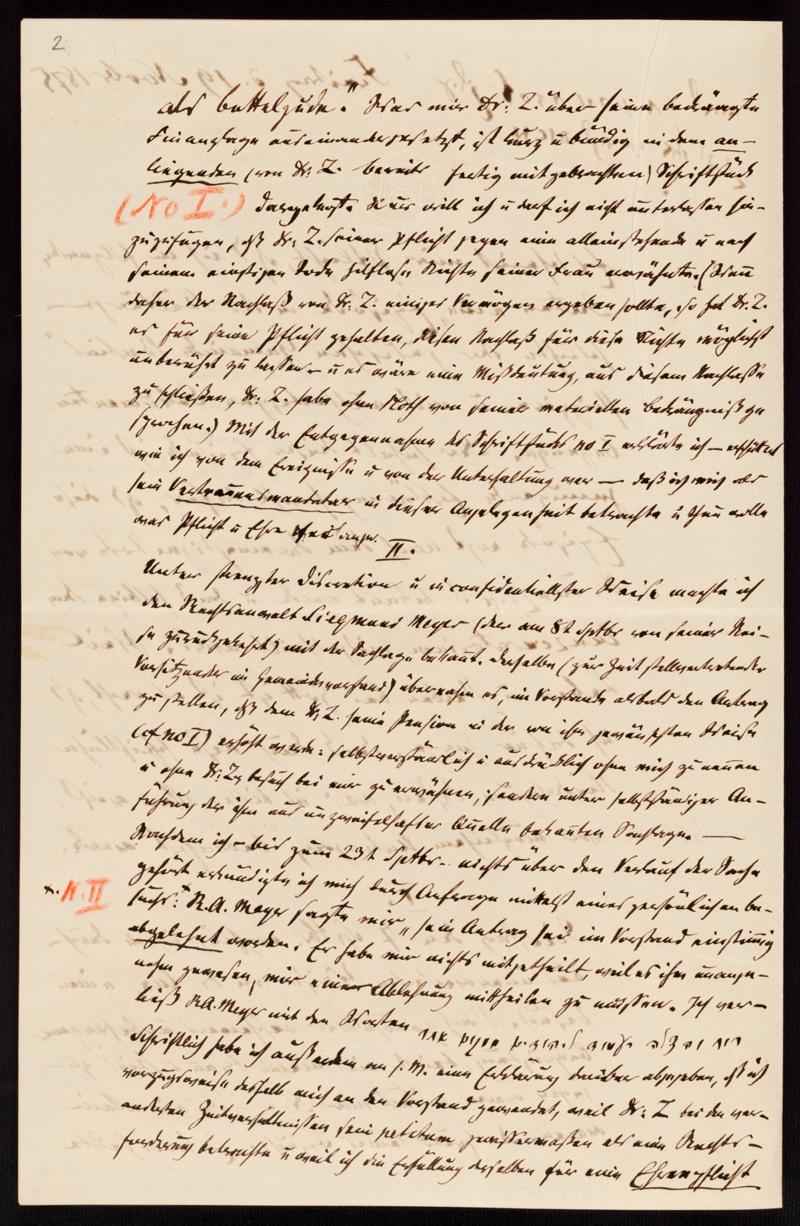 2
als bettelgude." Was mir Dr. Z. über seine bedrängte
Finanzlage auseinandergesetzt, ist kurz u bündig in dem an-
liegenden (von Dr. Z. bereits fertig mitgebrachten) Schriftstück
(No I.) dargelegt. Nur will ich u darf ich nicht unterlassen hin-
zuzufügen, dß Dr. Z. seiner Pflicht gegen eine alleinstehende u nach
seinem einstigen Tode hilflose Nichte seiner Frau erwähnte. (Wenn
daher der Nachlaß von Dr. Z. einiges Vermögen ergeben sollte, so hat Dr. Z.
es für seine Pflicht gehalten, diesen Nachlaß für diese Nichte möglichst
unberührt zu lassen – u es wäre eine Mißdeutung, aus diesem Nachlasse
zu schließen, Dr. Z. habe ohne Noth von seiner materiellen Bedrängniß ge
sprochen.) Mit der Entgegennahme des Schriftstücks No I erklärte ich – erschüttert
wie ich von dem Ereignisse u von der Unterhaltung war – daß ich mich als
sein Vertrauensmandatar in dieser Angelegenheit betrachte u thun wolle
was Pflicht u Ehre
II.
Unter strengster Discretion u in confidentiellster Weise machte ich
den Rechtsanwalt Siegmund Meyer (der am 8t Sptbr von seiner Rei-
se zurückgekehrt) mit der Sachlage bekannt. Derselbe (zur Zeit stellvertretender
Vorsitzender im Gemeindevorstand) übernahm es, im Vorstande alsbald den Antrag
zu stellen, dß dem Dr. Z. seine Pension in der von ihm gewünschten Weise
(cf No I) erhöht werde: selbstverständlich u ausdrücklich ohne mich zu nennen
u ohne Dr. Zs Besuch bei mir zu erwähnen, sondern unter selbstständiger An-
führung der ihm aus unzweifelhafter Quelle bekannten Sachlage. —
Nachdem ich – bis zum 23t Sptbr – nichts über den Verlauf der Sache
gehört erkundigte ich mich durch Anfrage mittelst eines persönlichen Be-
x. N. II suchs. x R. A. Meyer sagte mir „sein Antrag sei im Vorstand einstimmig
abgelehnt worden. Er habe mir nichts mitgetheilt, weil es ihm unange-
nehm gewesen, mir eine Ablehnung mittheilen zu müssen. Ich ver-
ließ R.A. Meyer mit den Worten
Schriftlich habe ich außerdem an S. M. eine Erklärung darüber abgegeben, dß ich
vorzugsweise deßhalb mich an den Vorstand gewendet, weil Dr. Z bei den ver-
änderten Zeitverhältnissen sein petitum gewissermaßen als eine Rechts-
forderung betrachte u weil ich die Erfüllung derselben für eine Ehrenpflicht